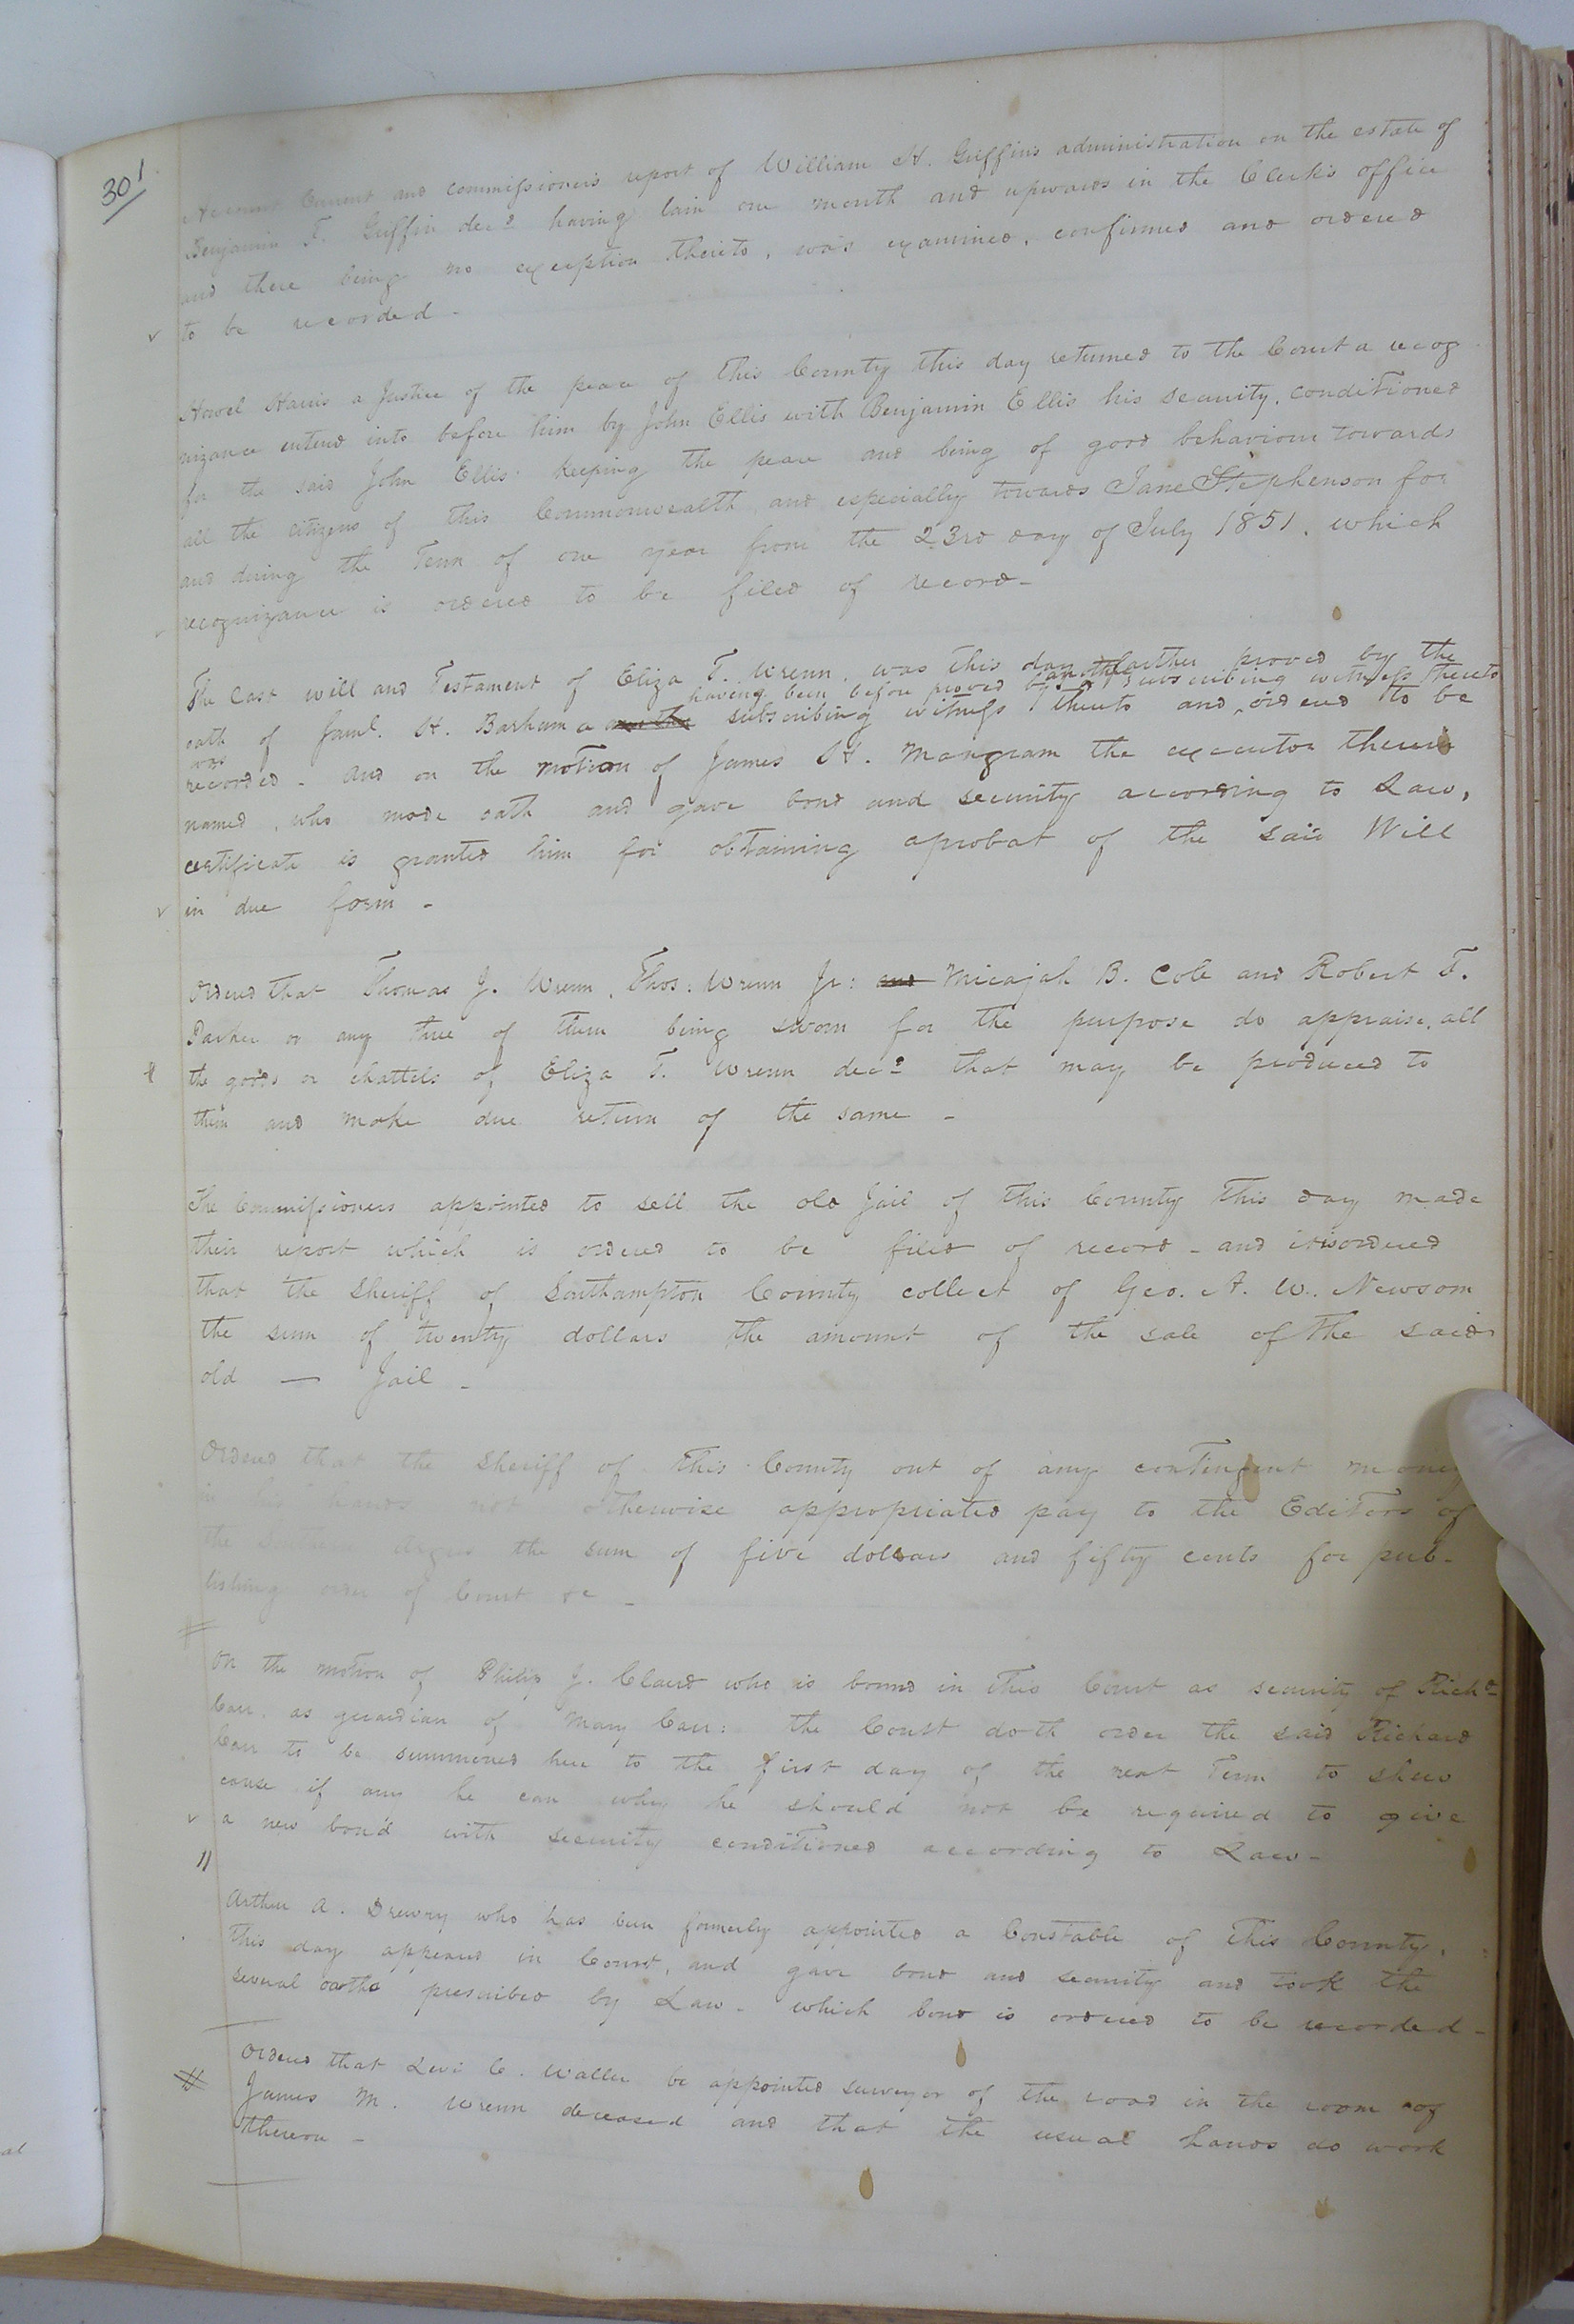 301
Account Current and commissioner's report of William H. Griffin's administration on the estate of
Benjamin T. Griffin decd. having lain one month and upwards in the Clerk's office
and there being no exception thereto, was examined, confirmed and ordered
to be recorded -
Howel Harris a Justice of the peace of this County this day returned to the Court a recog
nizance entered into before him by John Ellis with Benjamin Ellis his security, conditioned
for the said John Ellis keeping the peace and being of good behaviour towards
all the citizens of this Commonwealth, and especially towards Jane Stephenson for
and during the Term of one year from the 23rd day of July 1851. which
recognizance is ordered to be filed of record -
The Last will and Testament of Eliza T. Wrenn, was this day farther proved by the
having been before proved by another subscribing witness thereto
oath of Saml. H. Barham a subscribing witness thereto and ordered to be
was
recorded - and on the motion of James H. Mangram the executor therein
named, who made oath and gave bond and security according to Law,
certificate is granted him for obtaining aprobat of the said Will
in due form -
Ordered that Thomas J. Wrenn, Thos: Wrenn Jr: and Micajah B. Cole and Robert T.
Parker or any three of them being sworn for the purpose do appraise, all
the goods or chattels of Eliza T. Wrenn decd. that may be produced to
them and make due return of the same -
The Commissioners appointed to sell the old Jail of this County this day made
their report which is ordered to be filed of record - and it is ordered
that the Sheriff of Southampton County collect of Geo. A. W. Newsom
the sum of twenty dollars the amount of the sale of the said
old — Jail -
Ordered that the Sheriff of this County out of any contingent money
in his hands not otherwise appropriated pay to the Editors of
the Southern Argus the sum of five dollars and fifty cents for pub-
lishing order of Court &c -
On the motion of Philip J. Claud who is bound in this Court as security of Richd.
Carr, as guardian of Mary Carr: the Court doth order the said Richard
Carr to be summoned here to the first day of the next Term to shew
cause if any he can why he should not be required to give
a new bond with security conditioned according to Law -
Arthur A. Drewry who has been formerly appointed a Constable of this County,
this day appeared in Court, and gave bond and security and took the
several oaths prescribed by Law - which bond is ordered to be recorded -
Ordered that Levi C. Waller be appointed surveyor of the road in the room of
James M. Wrenn deceased and that the usual hands do work
thereon -